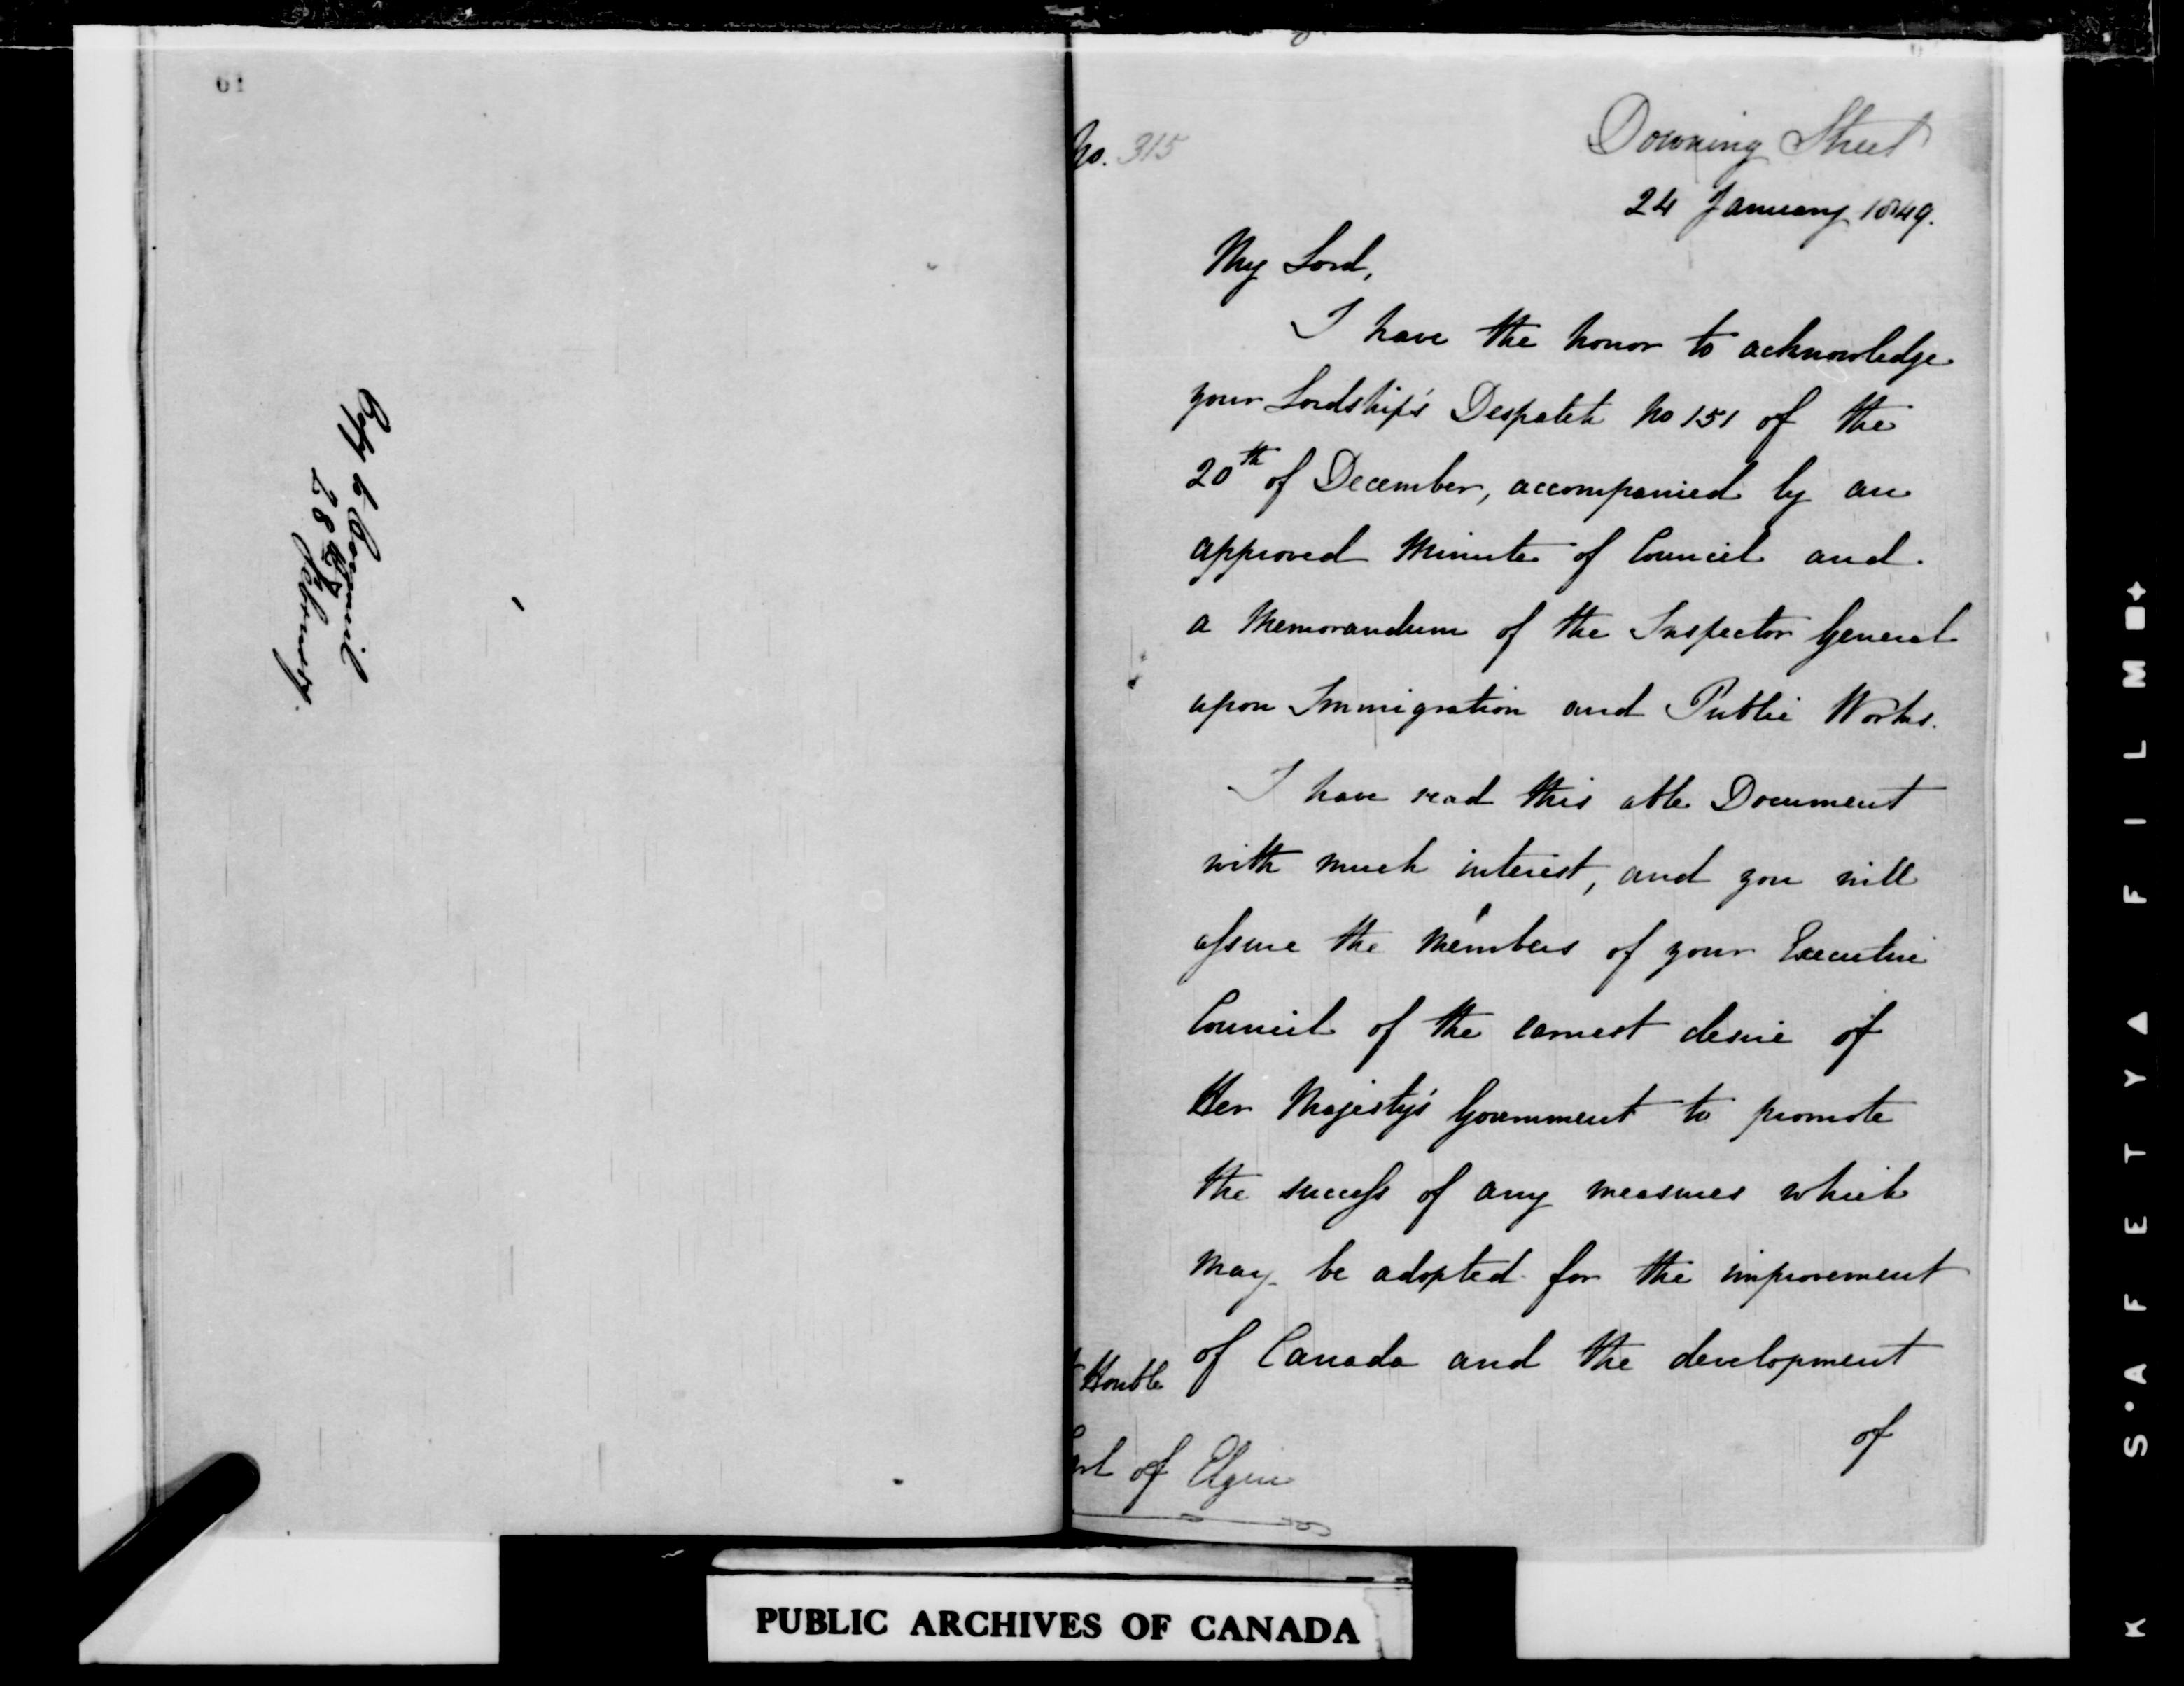 61
Copy to Council
28 February.
No. 315
Downing Street
24 January 1849.
My Lord,
I have the honor to acknowledge
your Lordship's Despatch No 151 of the
20th of December, accompanied by an
approved Minute of Council and
a Memorandum of the Inspector General
upon Immigration and Public Works.
I have read this able Document
with much interest, and you will
assure the Members of your Executive
Council of the earnest desire of
Her Majesty's Government to promote
the success of any measures which
may be adopted for the improvement
of Canada and the development
of
Honble
of Elgin
PUBLIC ARCHIVES OF CANADA
K S·A F E T Y ▲ F I L M